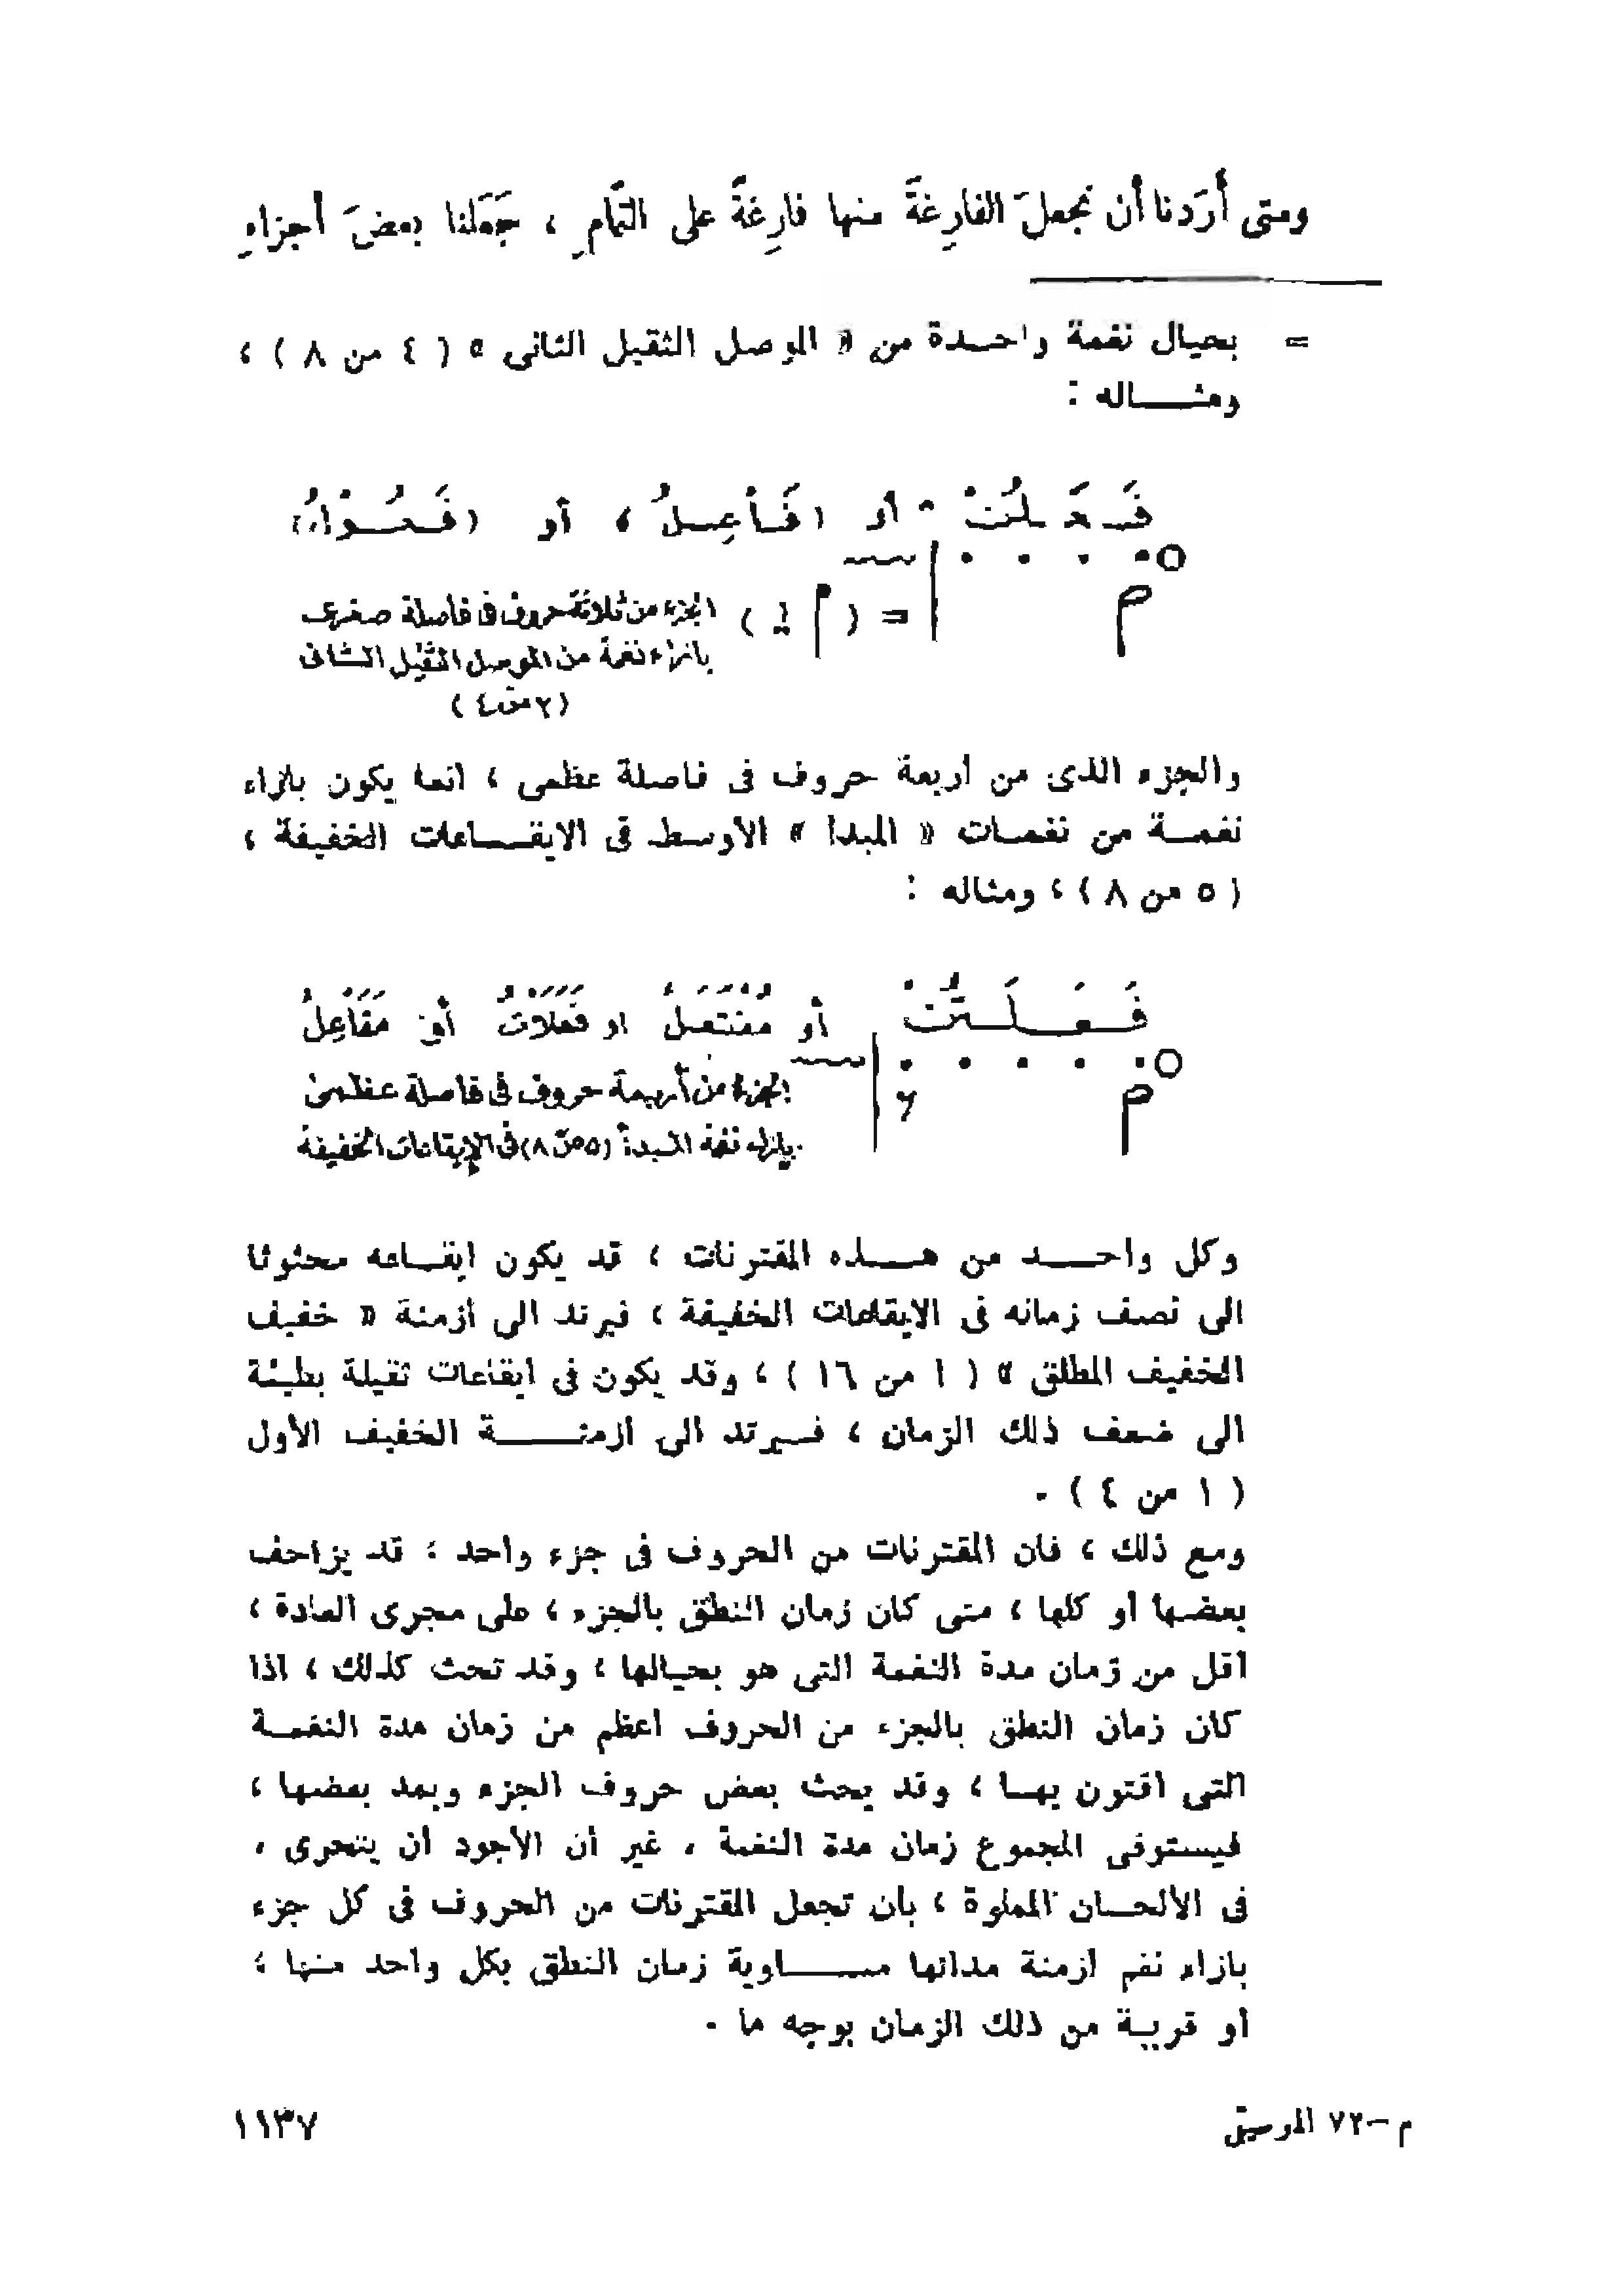 ومتى أَرَدنا أن نجعلَ الفارِغةَ منها فارِغةً على التَّمامِ ، جَعَلنا بعضَ أجزاءِ
= بحيال نغمة واحدة من « الموصل الثقيل الثانى » ( ٤ من ٨ ) ،
ومثاله :
فَعَلُتْ أو (فَاْعِلُ) ، أو (فَعُوْلُ)
م | = ( م )
الجزء من ثلاثة حروف فى فاصلة صغرى
بإزاء نغمة من الموصل الثقيل الثانى
(٢ من ٤)
والجزء الذى من أربعة حروف فى فاصلة عظمى ، انما يكون بازاء
نغمة من نغمات « المبدا » الأوسط فى الايقاعات الخفيفة ،
( ٥ من ٨ ) ، ومثاله :
فَعَلَتُنْ أو مُفْتَعَلُ او فَعَلَاْتُ أو مَفَاْعِلُ
م
الجزء من أربعة حروف فى فاصلة عظمى
بإزاء نغمة المبدأ (٥ من ٨) فى الإيقاعات الخفيفة
وكل واحد من هذه المقترنات ، قد يكون ايقاعه محثوثا
الى نصف زمانه فى الايقاعات الخفيفة ، فيرتد الى أزمنة « خفيف
الخفيف المطلق » ( ١ من ١٦ ) ، وقد يكون فى ايقاعات ثقيلة بطيئة
الى ضعف ذلك الزمان ، فيرتد الى ازمنة الخفيف الأول
( ١ من ٤ ) .
ومع ذلك ، فان المقترنات من الحروف فى جزء واحد ، قد يزاحف
بعضها أو كلها ، متى كان زمان النطق بالجزء ، على مجرى العادة ،
أقل من زمان مدة النغمة التى هو بحيالها ، وقد تحث كذلك ، اذا
كان زمان النطق بالجزء من الحروف اعظم من زمان مدة النغمة
التى اقترن بها ، وقد يحث بعض حروف الجزء ويمد بعضها ،
فيستوفى المجموع زمان مدة النغمة ، غير أن الأجود أن يتحرى ،
فى الألحان المملوة ، بأن تجعل المقترنات من الحروف فى كل جزء
بازاء نغم ازمنة مداتها مساوية زمان النطق بكل واحد منها ،
أو قريبة من ذلك الزمان بوجه ما .
م – ٧٢ الموسيقى
١١٣٧